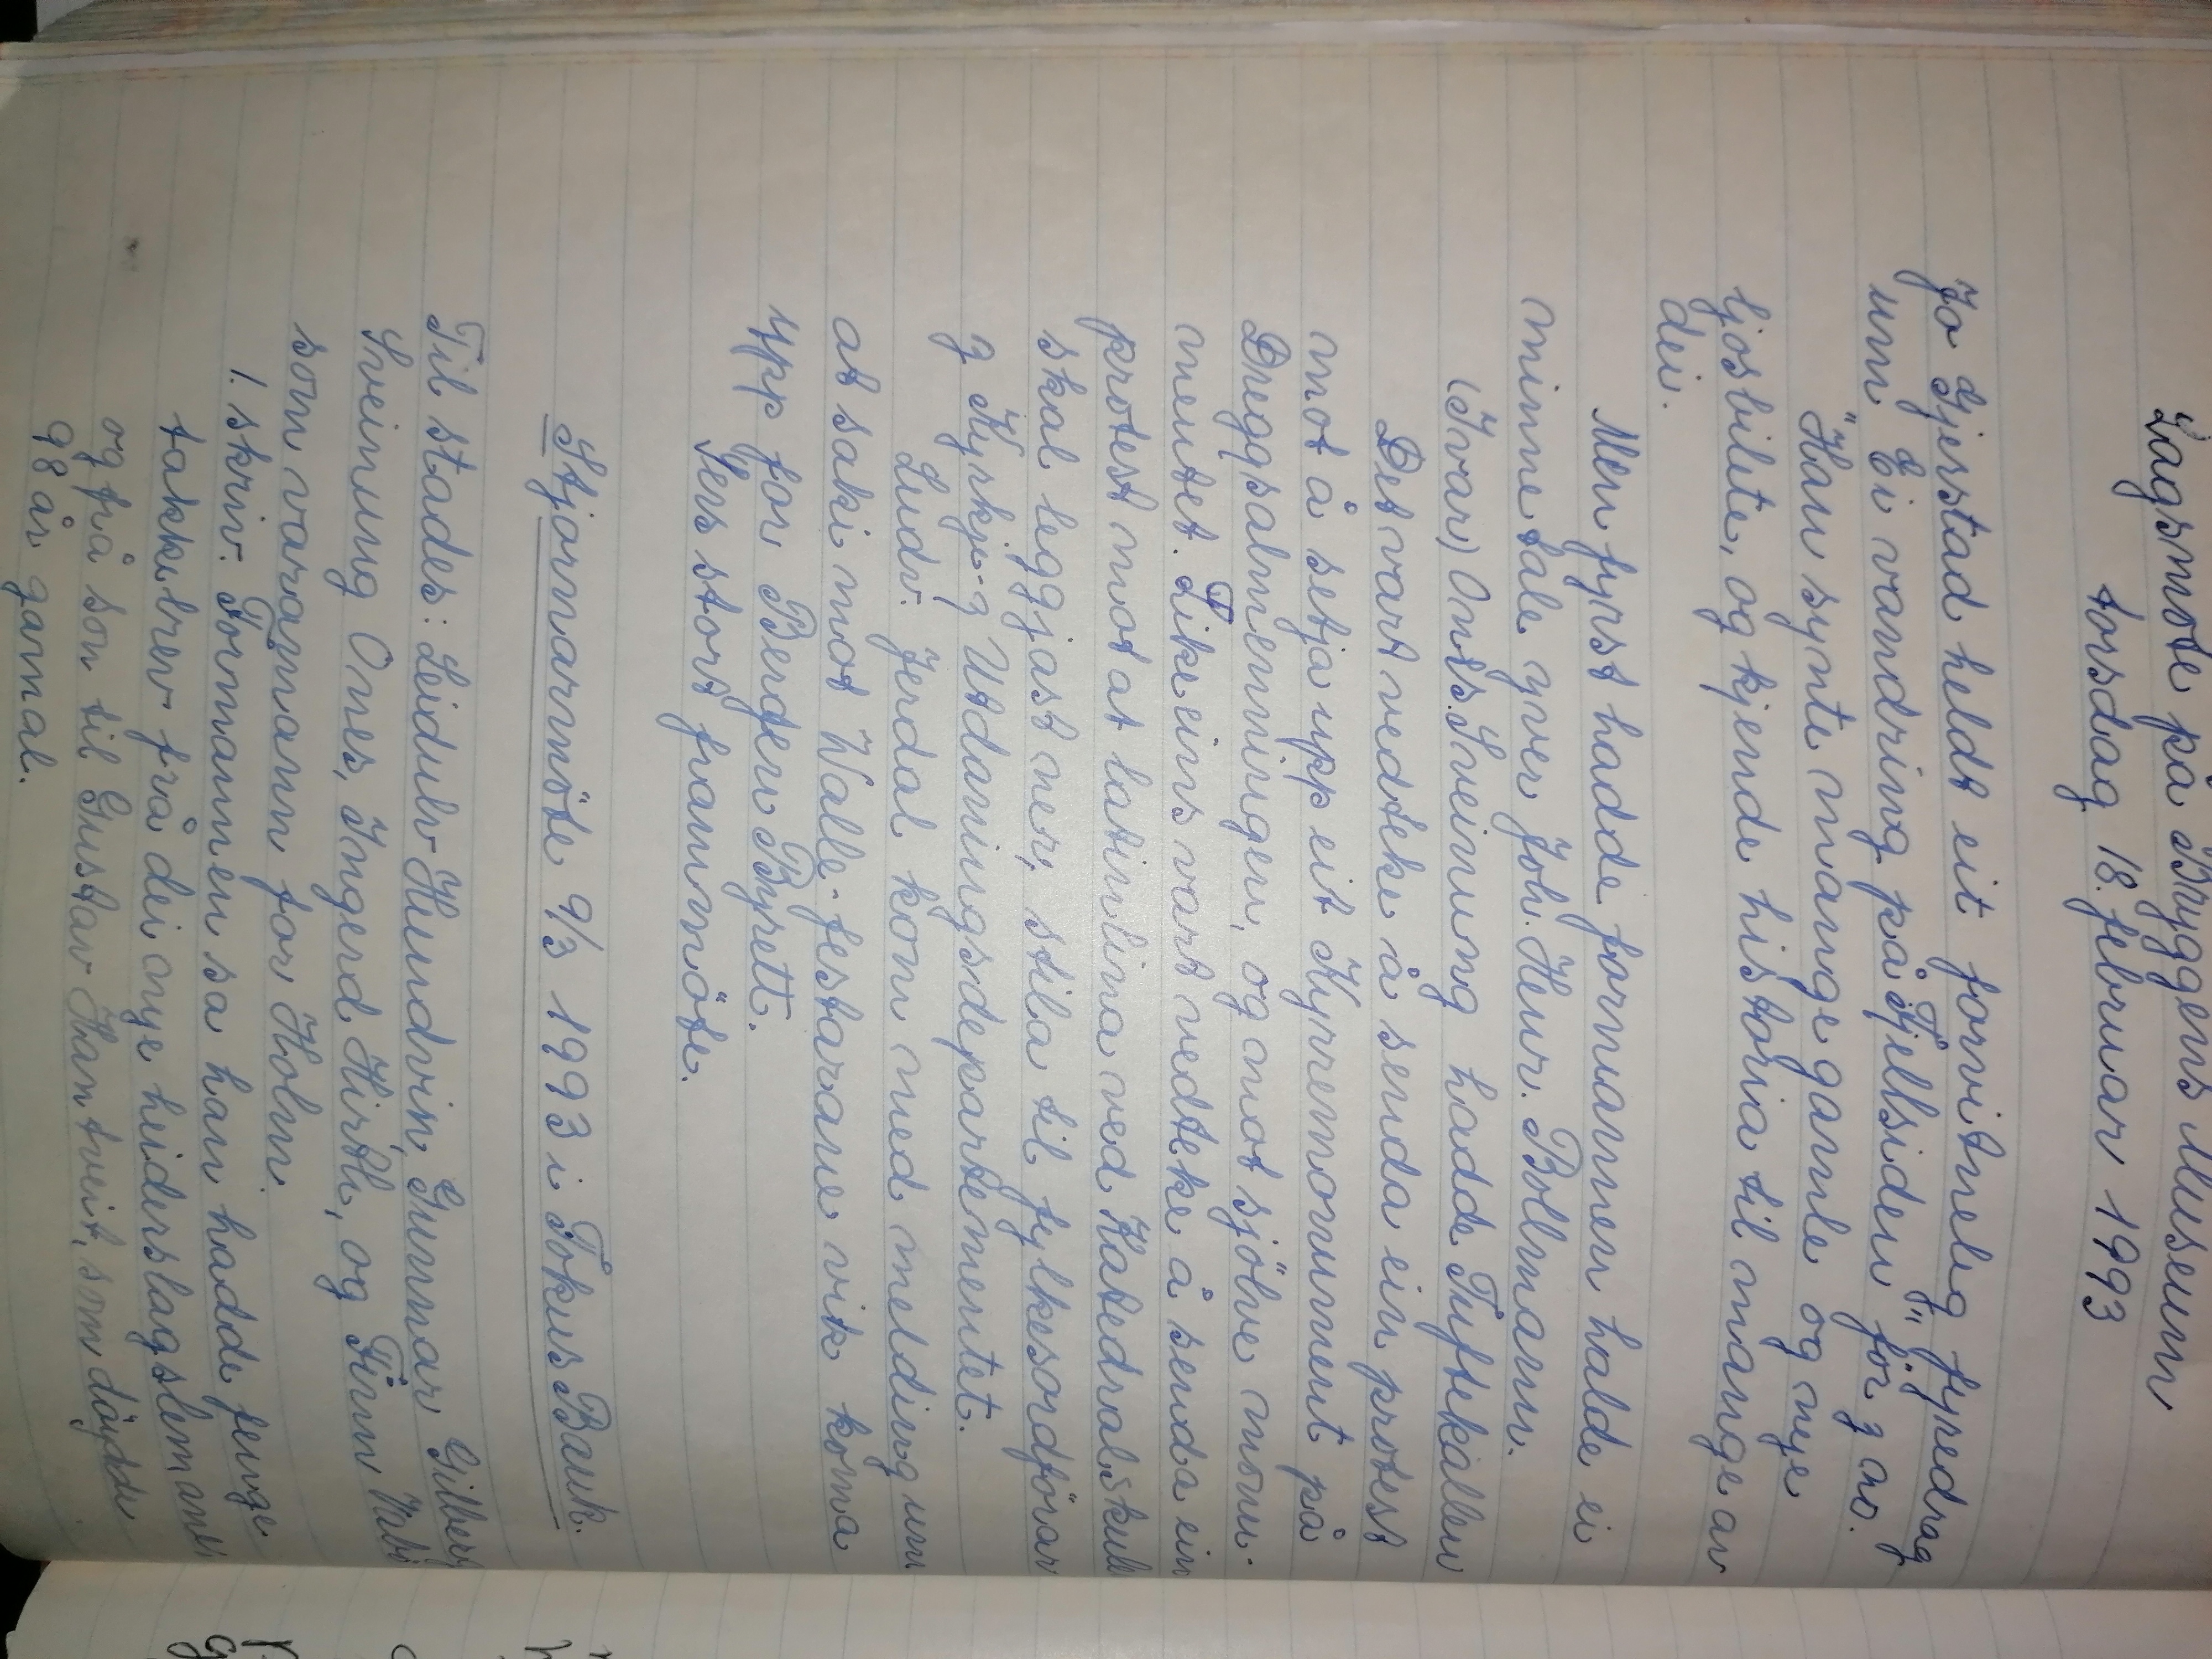 Lagsmøte på Bryggens Museum
torsdag 18. februar 1993
Jo Gjerstad heldt eit forvitneleg fyredrag
um "Ei vandring på Fjellsiden" för g no.
Han synte mange gamle og nye
ljosbilete, og kjende historia til mange av
dei.
Men fyrst hadde formannen halde ei
minnetale yver Joh. Henr. Pollmann.
(Ivar) Ants. Sveinung hadde Tuftekallen
Det vart vedteke å senda ein protest
mot å setja upp eit Kyrremonument på
Dregsalmenningen, og mot sjölve monu-
mentet. Likeeins vart vedteke å senda ein
protest mot at latinlina ved Katedralskulen
skal leggjast ner, stila til fylkesordförar
g Kyrkje- g Utdaningsdepartementet.
Ludv. Jerdal kom med melding um
at saki mot Valle-festarane vik koma
upp for Bergen Byrett.
Sers stort frammöte.
Stjornarmöte 9/3 1993 i Fokus Bank.
Til stades: Leidulv Hundvin, Gunnar Gilberg
Sveinung Ones, Ingerd Hirth, og Finn
som varamann for Holm.
1. skriv: Formannen sa han hadde fenge
takkebrev frå dei nye heiderslagslemane,
og frå son til Gustav Hamtveit, som döydde
98 år gamal.